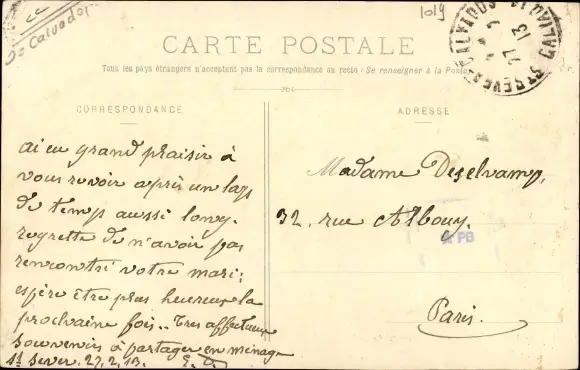 Calvados
1019
CALVADOS
27 2 13
CARTE POSTALE
Tous les pays étrangers n'acceptent pas la correspondance au recto (Se renseigner à la Poste)
CORRESPONDANCE
ai eu grand plaisir à
vous revoir après un laps
de temps aussi long.
regrette de n'avoir pas
rencontré votre mari ;
espère être plus heureux la
prochaine fois.. Très affectueux
souvenirs à partager en ménage
St Sever. 27.2.13.
ADRESSE
Madame Deselvamp,
32, rue Albouy.
APB
Paris.